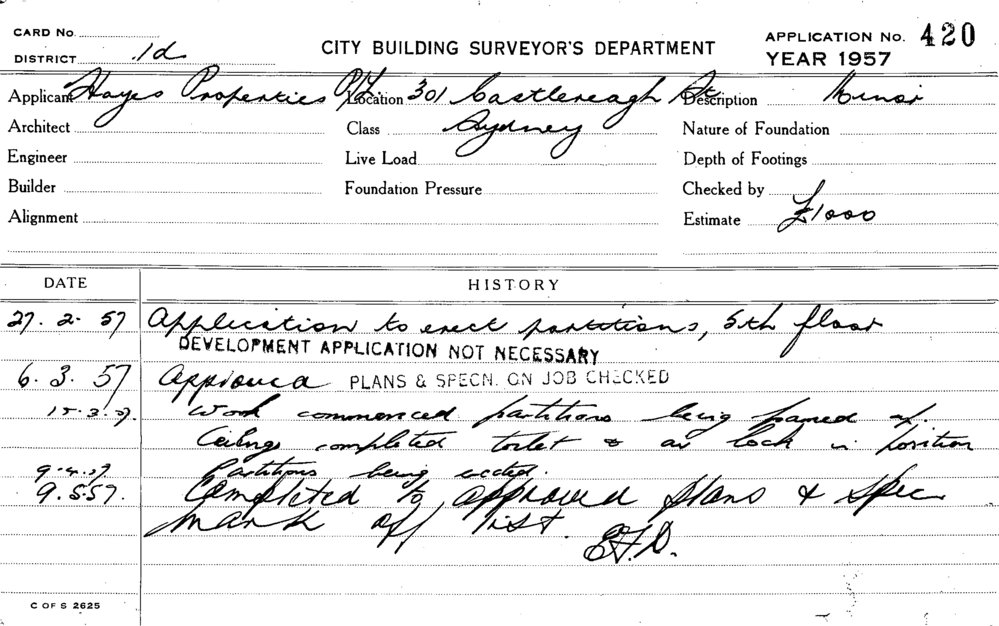 CARD No.
DISTRICT 1d
CITY BUILDING SURVEYOR'S DEPARTMENT
APPLICATION No. 420
YEAR 1957
Applicant Hayes Properties P/L Location 301 Castlereagh St. Description Minor
Architect Class Sydney Nature of Foundation
Engineer Live Load Depth of Footings
Builder Foundation Pressure Checked by
Alignment Estimate £1000
DATE HISTORY
27. 2. 57 Application to erect partitions, 5th floor
DEVELOPMENT APPLICATION NOT NECESSARY
6. 3. 57 Approved PLANS & SPECN. ON JOB CHECKED
15. 3. 57. Work commenced partitions being framed up.
Ceilings completed toilet & air lock in position
9. 4. 57 Partitions being erected.
9. 5. 57. Completed to approved plans & spec
mark off list.
E.F.D.
C OF S 2625